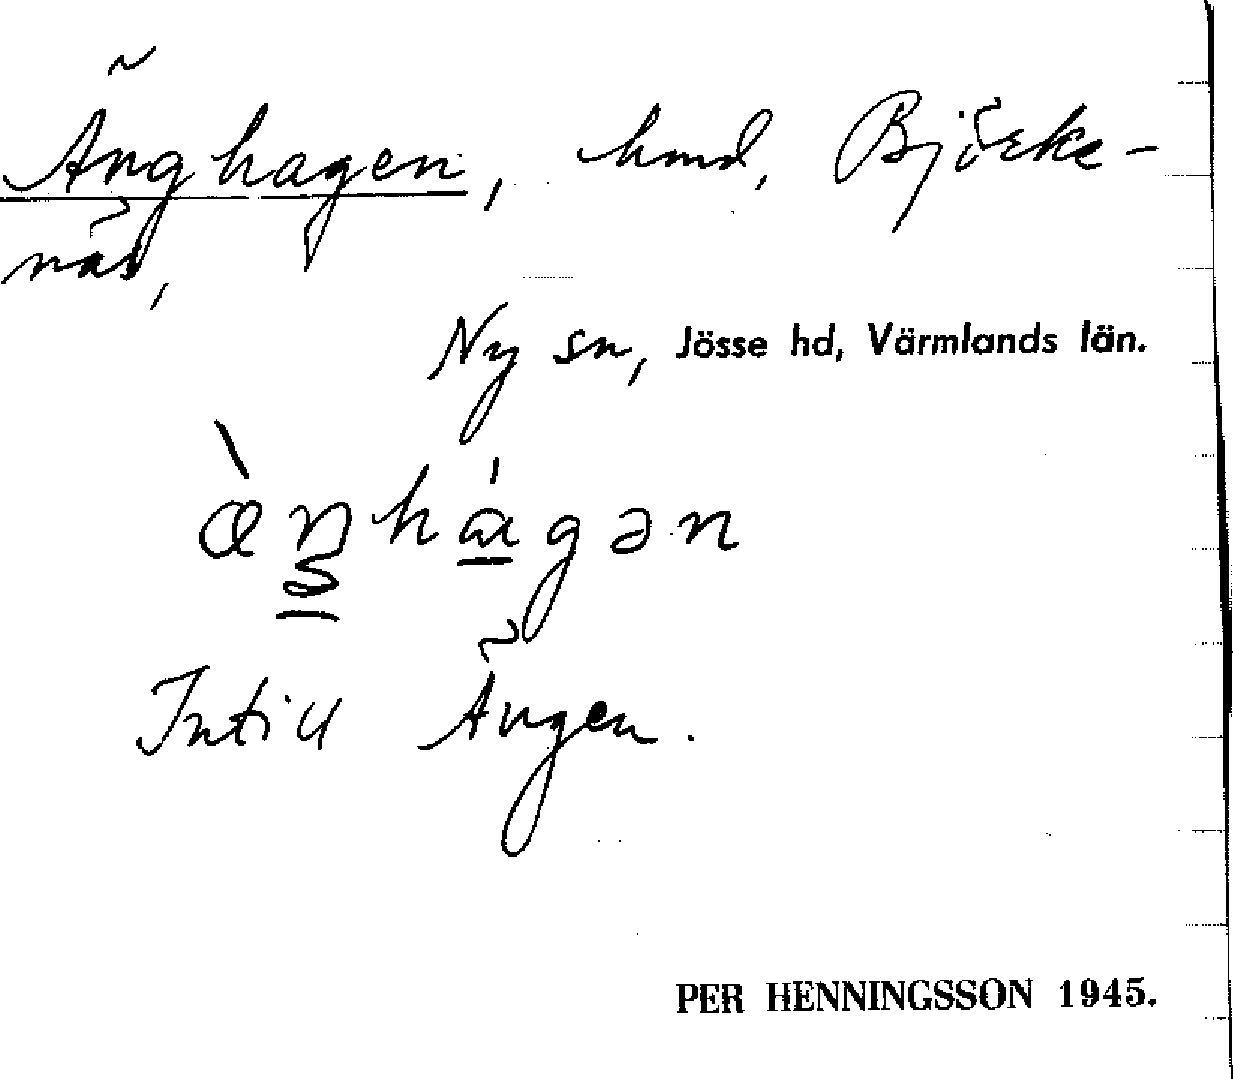 Änghagen, hmd, Björke-
näs,
Ny sn, Jösse hd, Värmlands län.
æ̀ŋhágən
Intill Ängen.
PER HENNINGSSON 1945.